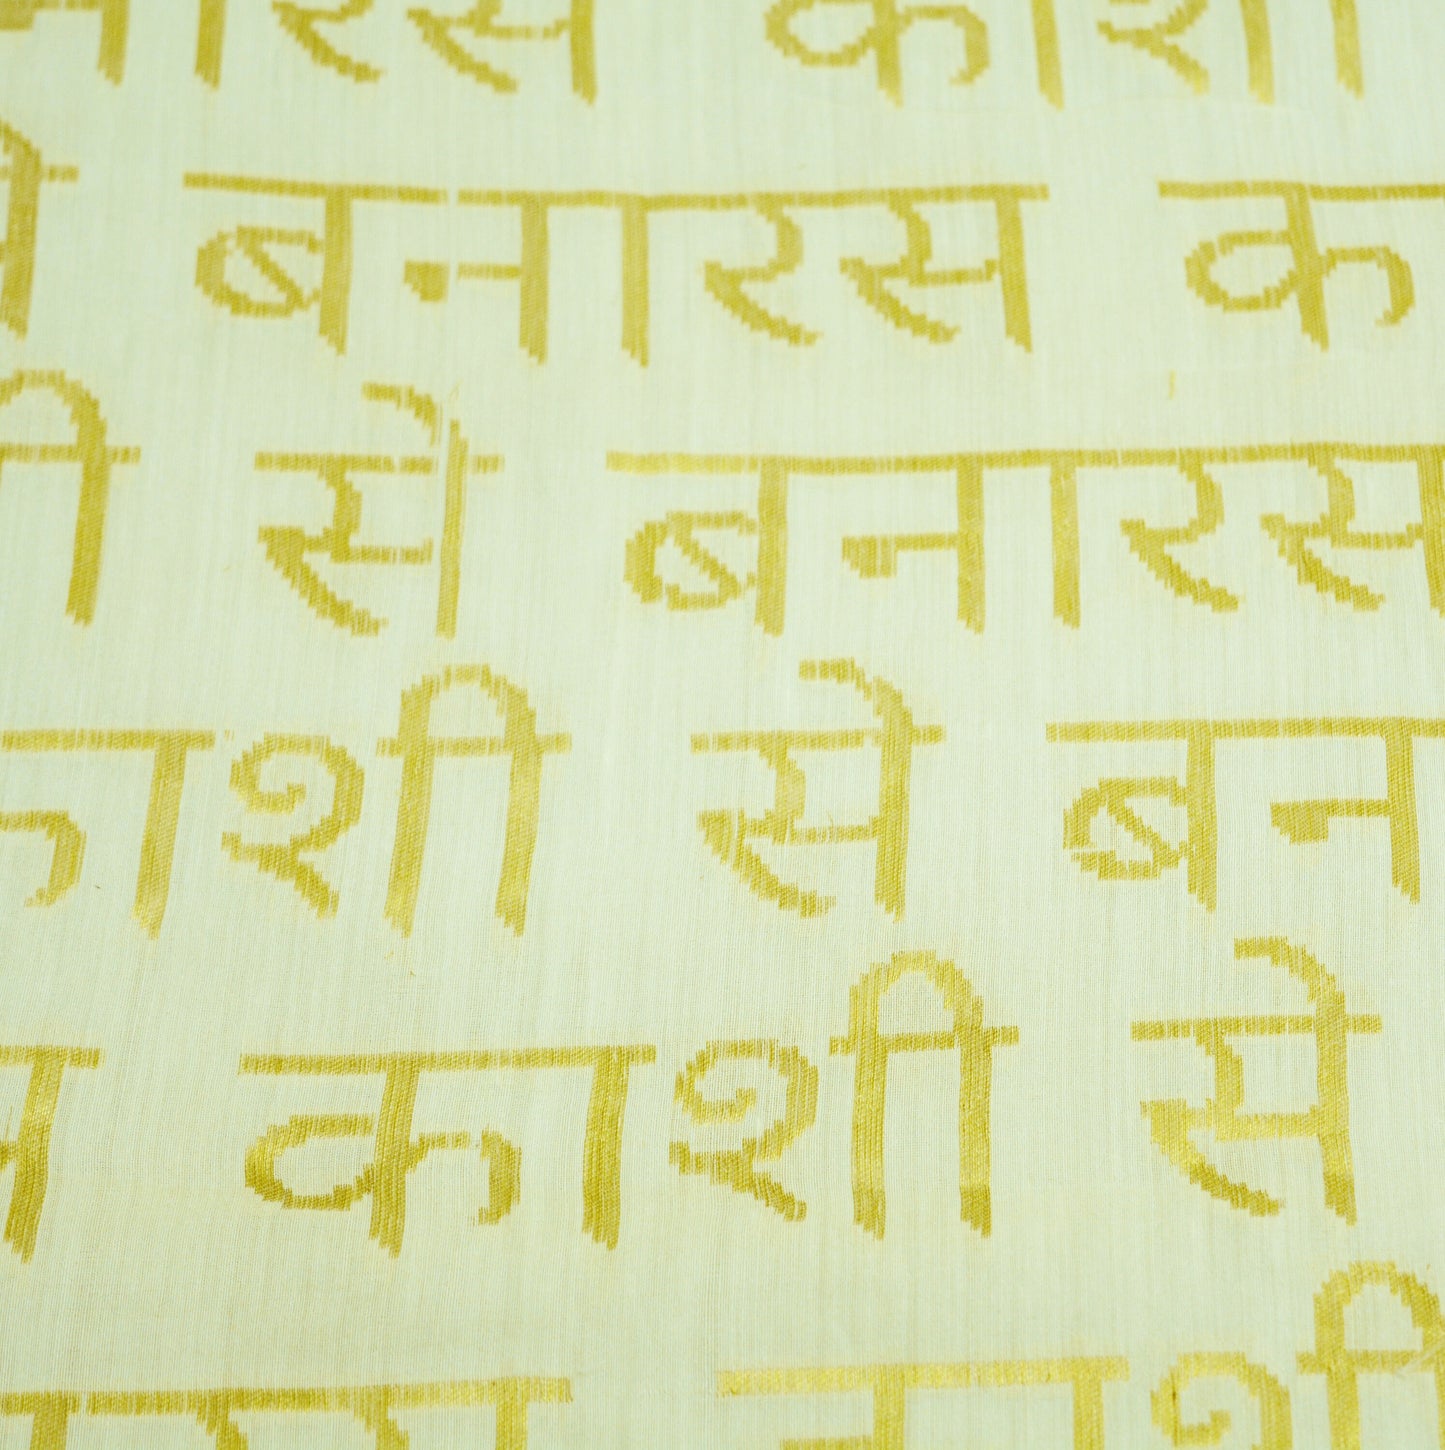 बनारस काशी
से बनारस का
शी से बनारस
काशी से बना
स काशी से
काशी